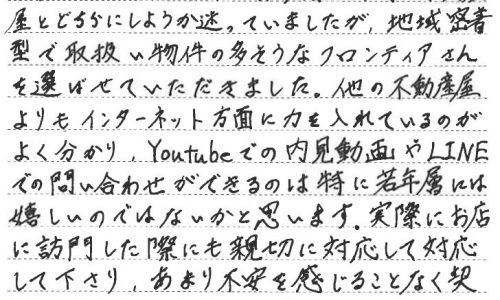 屋とどちらにしようか迷っていましたが、地域密着
型で取扱い物件の多そうなフロンティアさん
を選ばせていただきました。他の不動産屋
よりもインターネット方面に力を入れているのが
よく分かり、Youtubeでの内見動画やLINE
での問い合わせができるのは特に若年層には
嬉しいのではないかと思います。実際にお店
に訪門した際にも親切に対応して対応
して下さり、あまり不安を感じることなく契